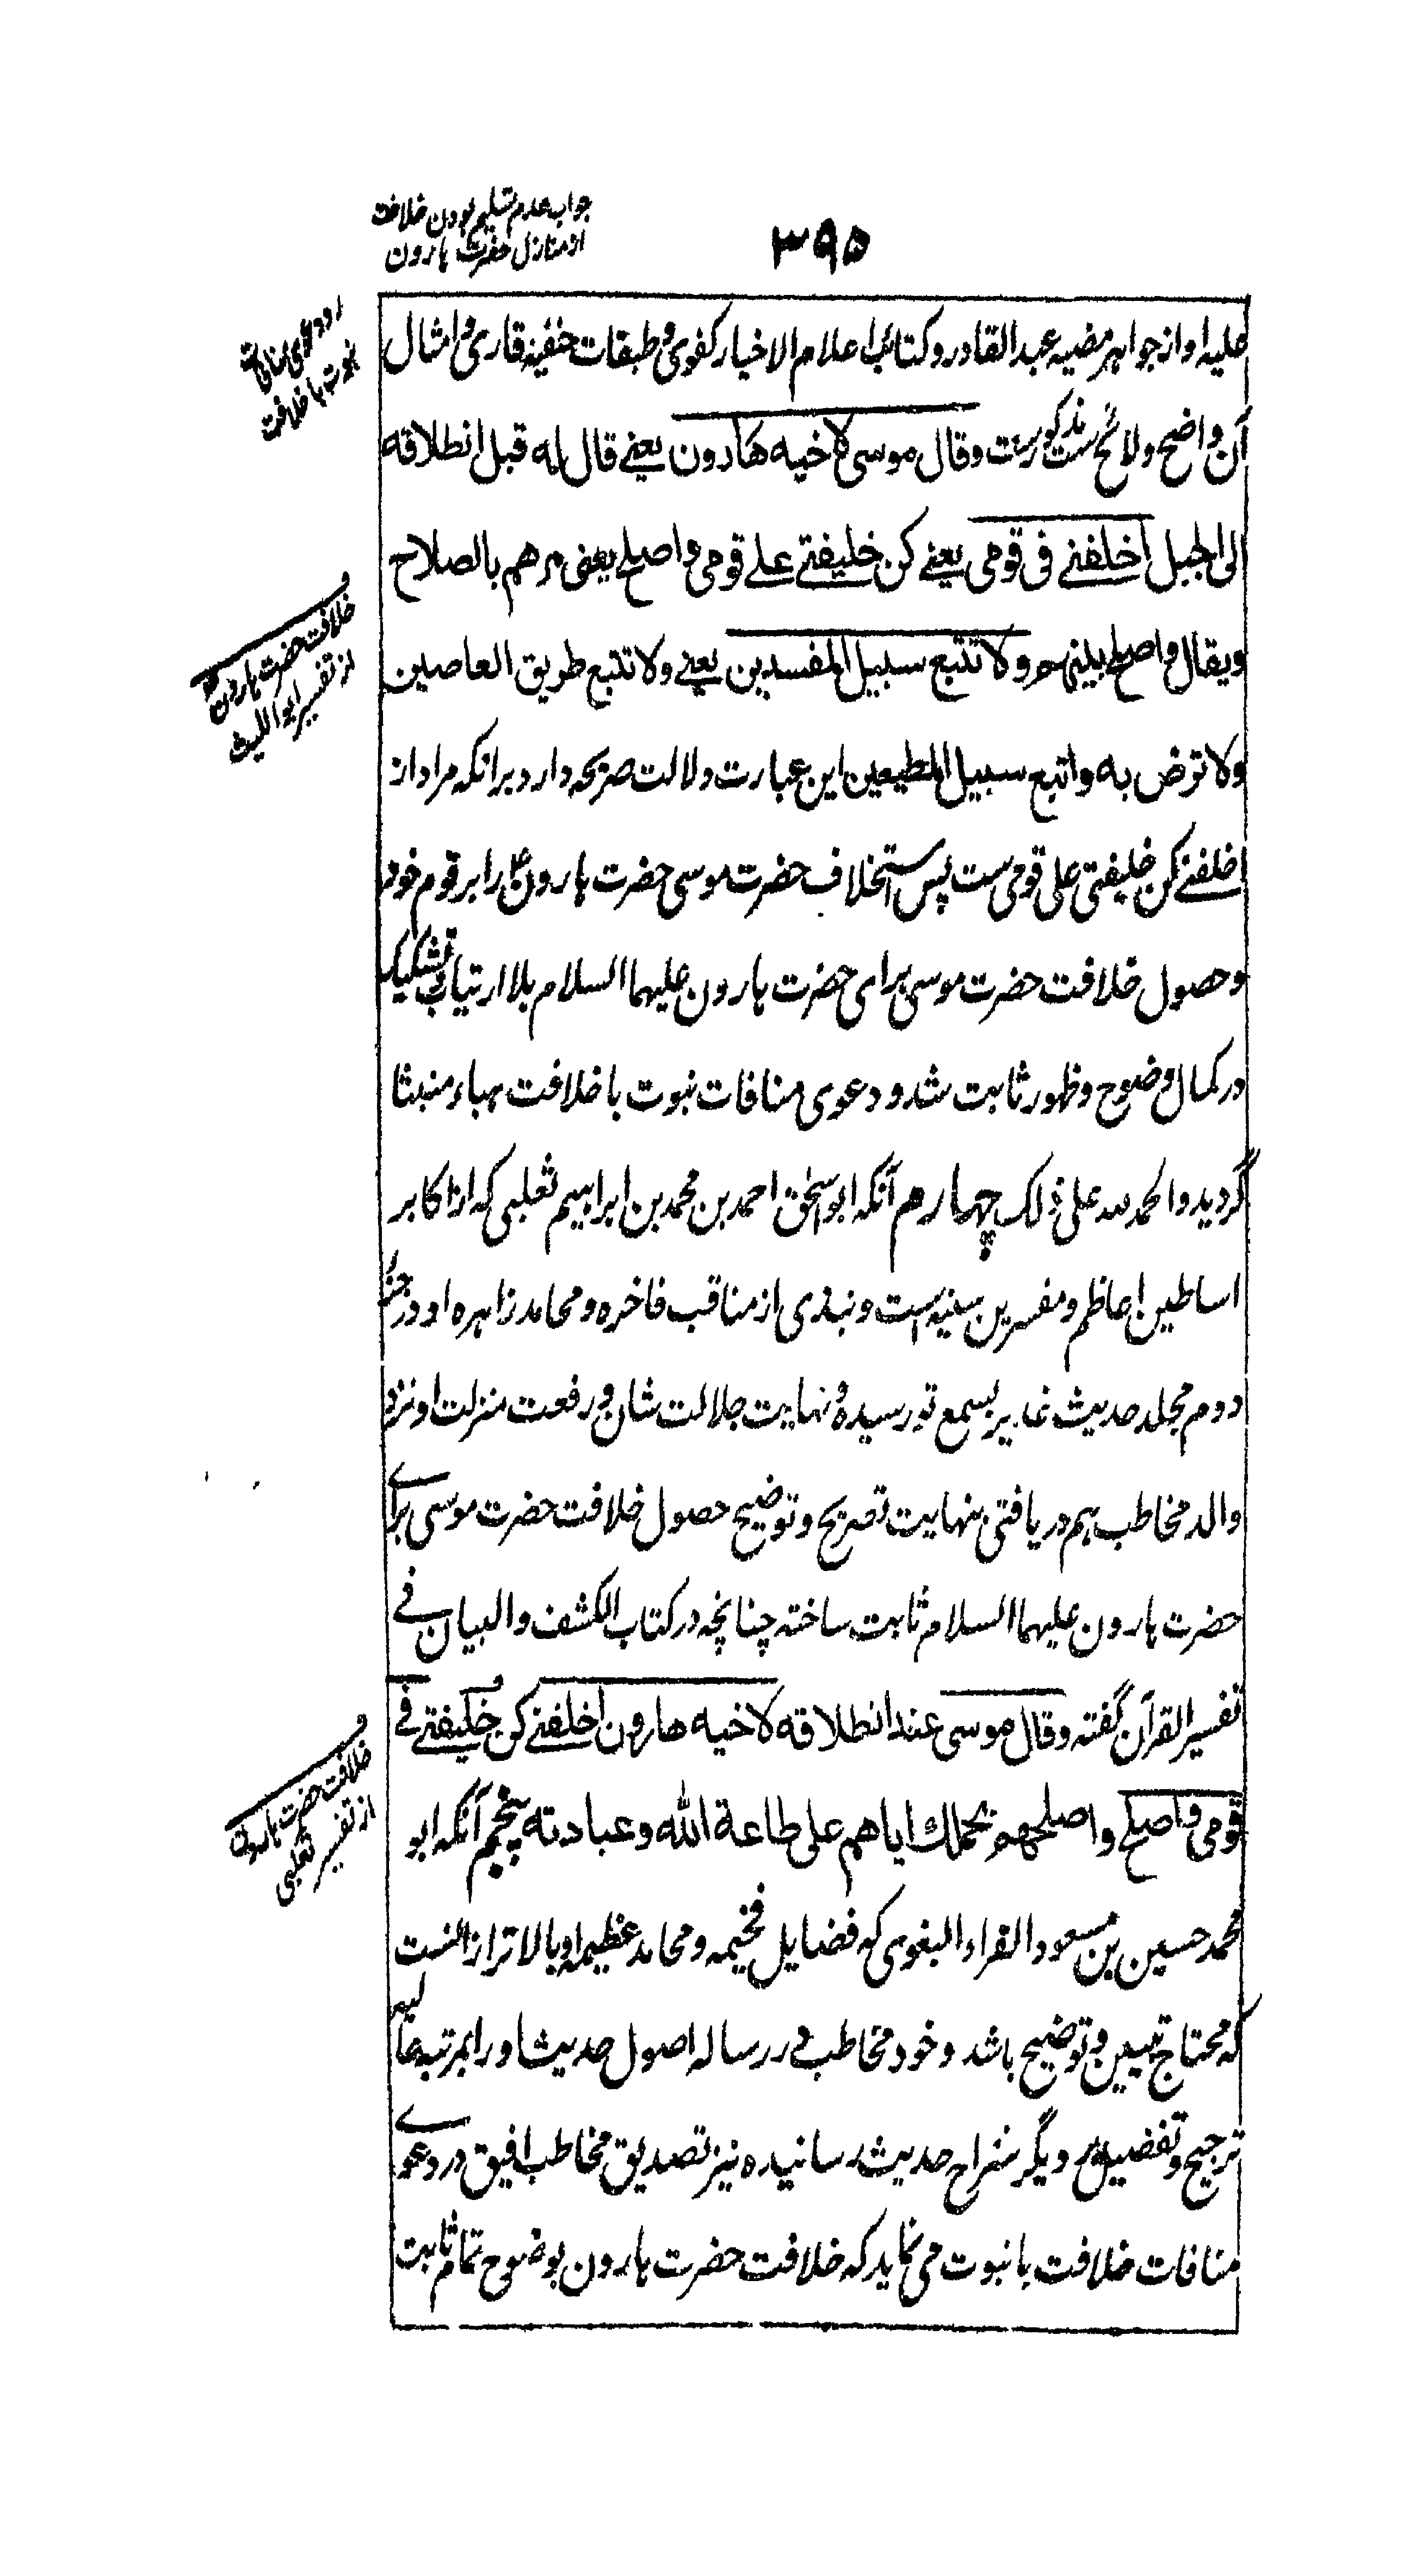 جواب عدم تسلیم بودن خلافت
از منازل حضرت هارون
۳۹۵
علیه او از جواهر مضیه عبد القادر و کتائب اعلام الاخیار کفوی و طبقات حنفیه قاری و امثال
آن واضح و لائح ست مذکورست وقال موسی لاخیه هارون یعنے قال له قبل انطلاقه
الی الجبل اخلفنے فی قومی یعنے کن خلیفتے علے قومی واصلح یعنی مرهم بالصلاح
ویقال واصلح بینهم ولا تتبع سبیل المفسدین یعنے ولا تتبع طریق العاصین
ولا ترض به واتبع سبیل المطیعین این عبارت دلالت صریحه دارد برانکه مراد از
اخلفنے کن خلیفتی علی قومی ست پس استخلاف حضرت موسی حضرت هارون را بر قوم خود
و حصول خلافت حضرت موسی برای حضرت هارون علیهما السلام بلا ارتیاب و تشکیک
در کمال وضوح و ظهور ثابت شد و دعوی منافات نبوت با خلافت هباء منبثا
گردید والحمد لله علی ذلک چهارم آنکه ابو اسحٰق احمد بن محمد بن ابراهیم ثعلبی که از اکابر
اساطین اعاظم و مفسرین سنیه است و نبذی از مناقب فاخره و محامد زاهره او در جزء
دوم مجلد حدیث غدیر بسمع تو رسیده و نهایت جلالت شان و رفعت منزلت او نزد
والد مخاطب هم دریافتی بنهایت تصریح و توضیح حصول خلافت حضرت موسی برائے
حضرت هارون علیهما السلام ثابت ساخته چنانچه در کتاب الکشف والبیان فے
تفسیر القرآن گفته وقال موسی عند انطلاقه لاخیه هارون اخلفنے کن خلیفتے فے
قومی واصلح واصلحهم بحملك ایاهم علی طاعة الله وعبادته پنجم آنکه ابو
محمد حسین بن مسعود الفراء البغوی که فضایل فخیمه و محامد عظیمه او بالاتر از انست
که محتاج تبیین و توضیح باشد و خود مخاطب در رساله اصول حدیث او را بمرتبه عالیه
ترجیح و تفضیل بر دیگر شراح حدیث رسانیده نیز تصدیق مخاطب افیق در دعوے
منافات خلافت با نبوت می نماید که خلافت حضرت هارون بوضوح تمام ثابت
رد دعوی منافاة
نبوت با خلافت
خلافت حضرت هارون
از تفسیر ابو اللیث
خلافت حضرت هارون
از تفسیر ثعلبی